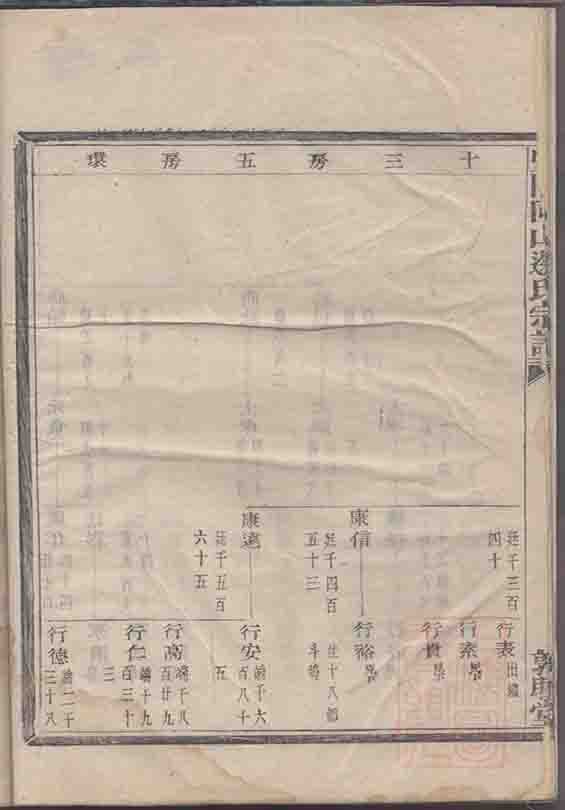 十三房五房環
山邊氏宗
行表
出繼
廷千三百
四十
行素
行貴
康信
行裕
廷千四百
五十三
住十八都
康遠
行安
千六
百八十
五
廷千五百
六十五
行高
千八
百廿九
行仁
千九
百三十
三
行德
二千
三十八